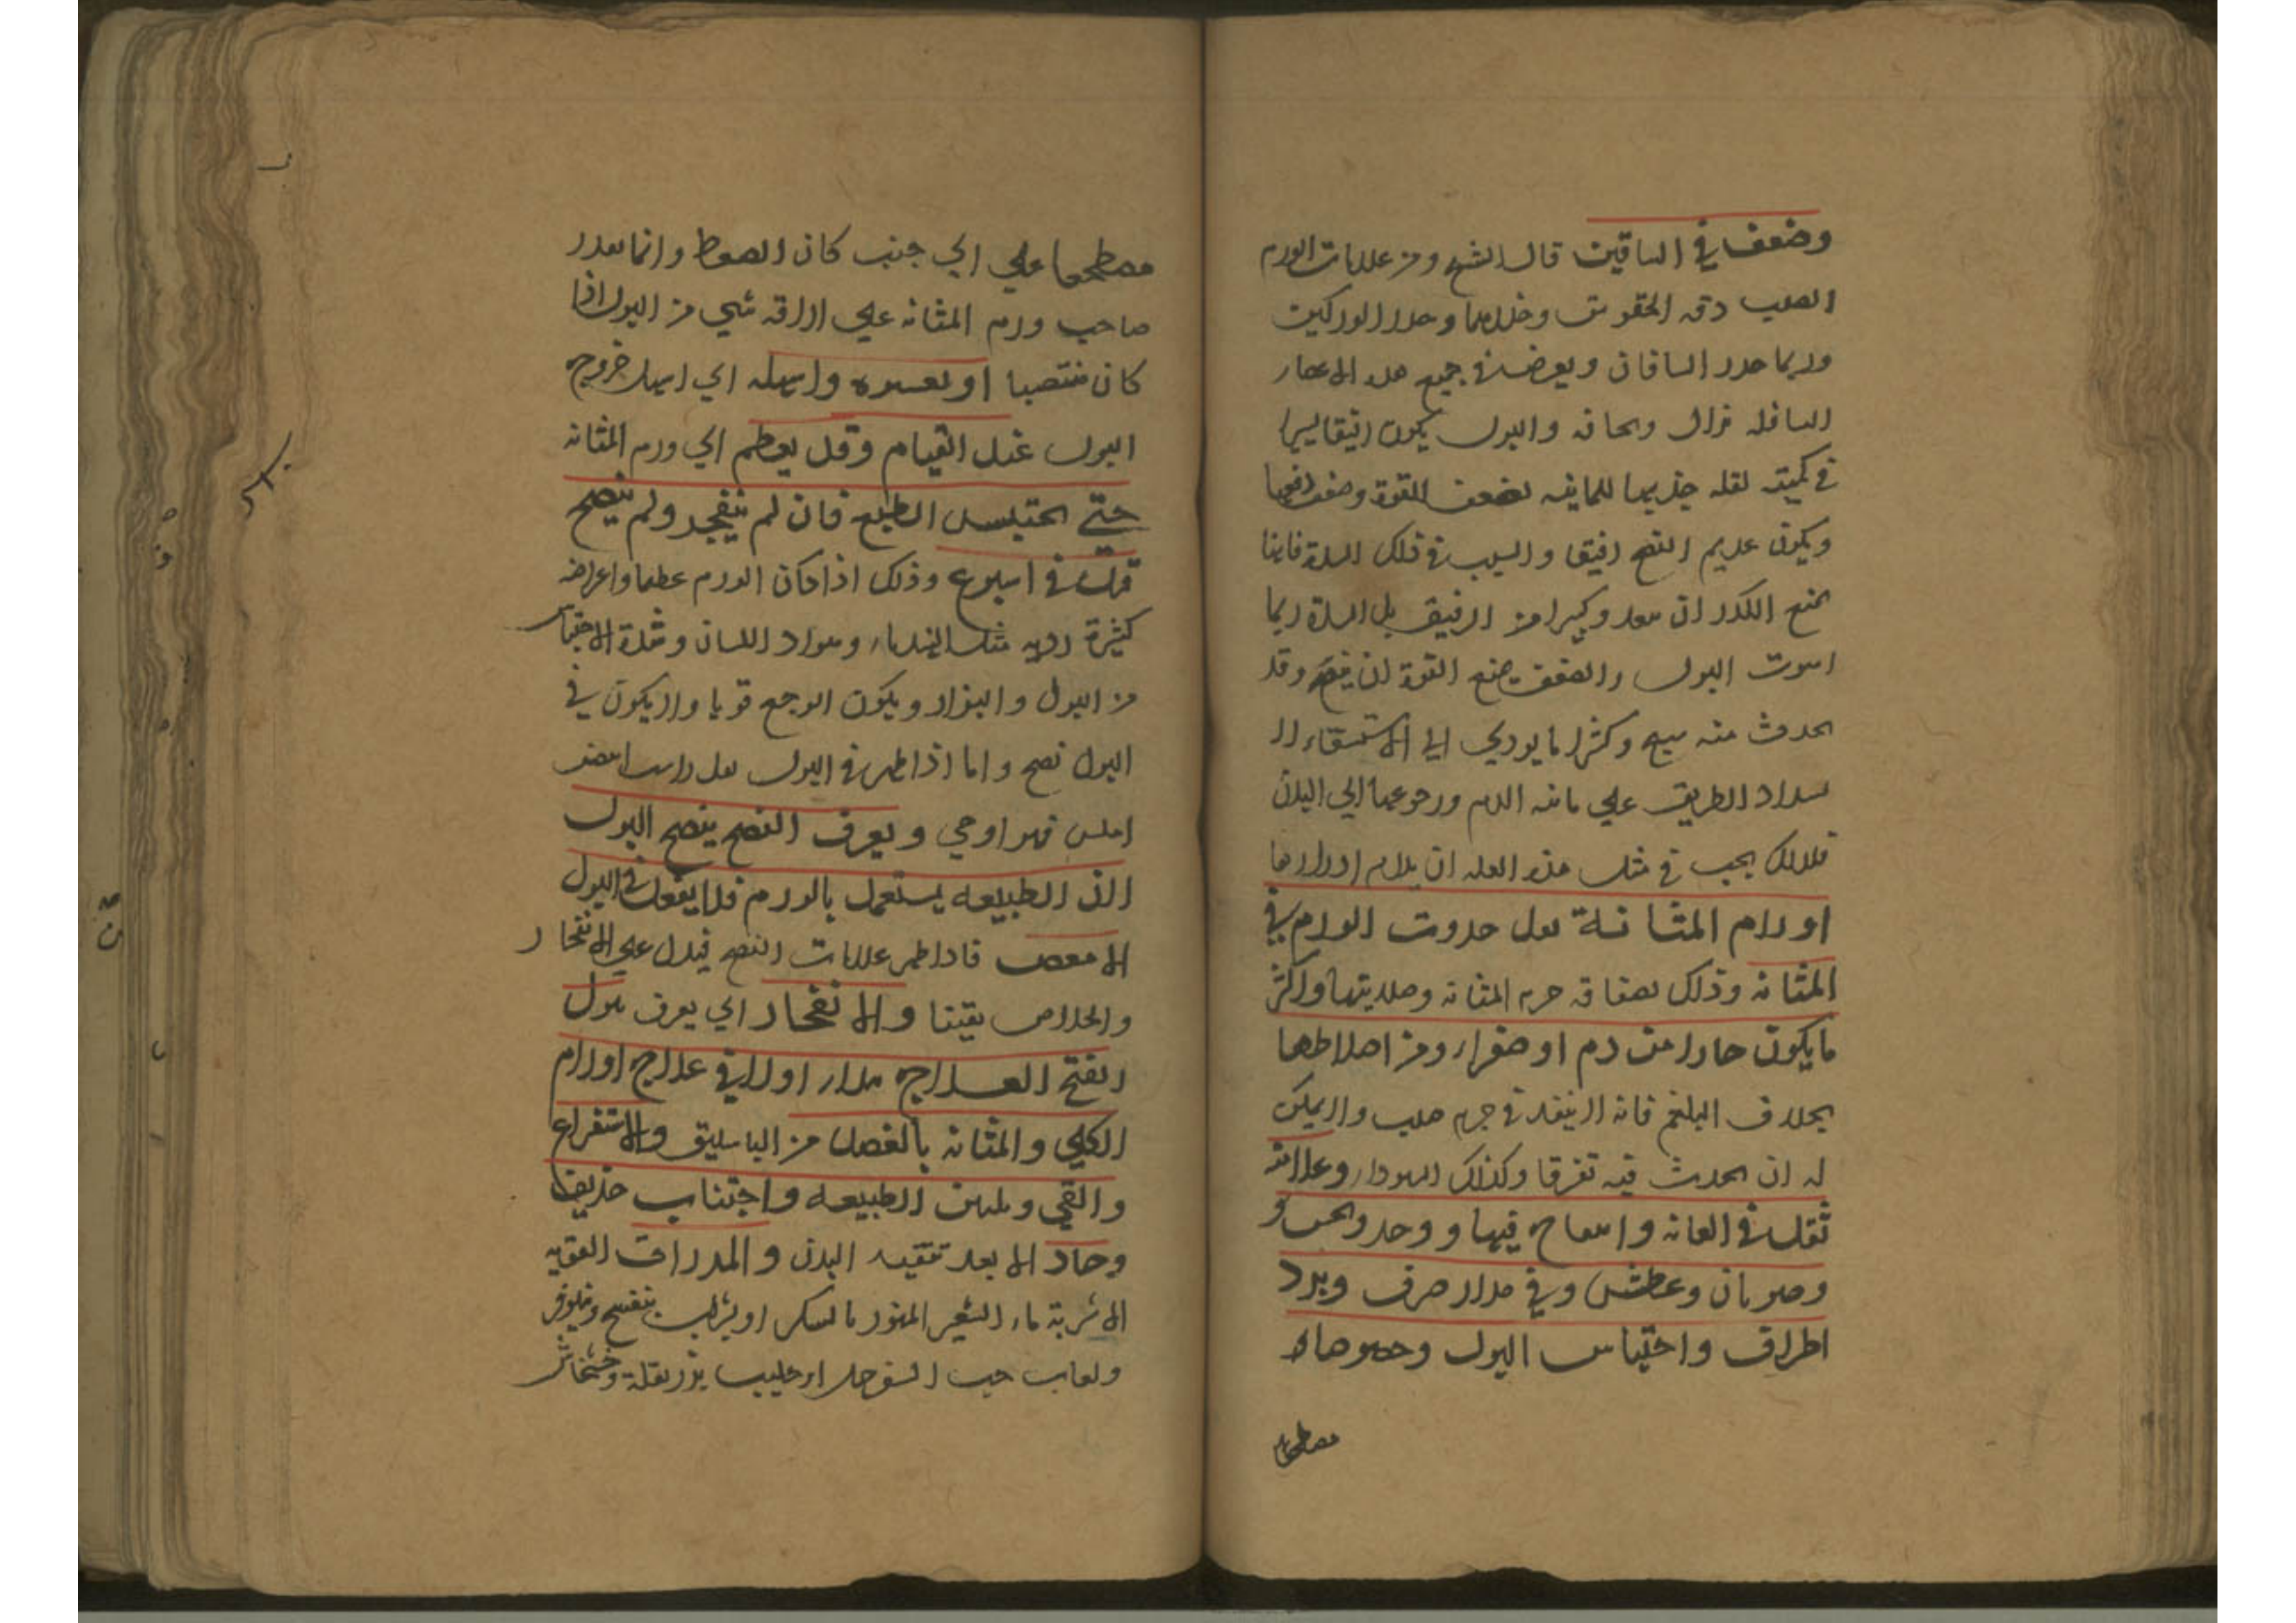 وضعف في الساقين قال الشيخ ومن علامات الورم
الصلب دقه الحقوين وخدرهما وخدر الوركين
وربما خدر الساقان ويعرض في جميع هذه الاعضاء
السافله هزال ونحافه والبول يكون رقيقا يسيرا
في كميته لقله جذبها للمائيه لضعف القوة وضعف دفعها
ويكون عديم النضج رقيقا والسبب في ذلك السدة فانها
تمنع الكدر ان ينفد وكثيرا من الرقيق بل السدة ربما
البول والضعف يمنع القوة ان ينضج وقد
يحدث منه وكثيرا ما يودي الي الاستسقاء لا
نسداد الطريق علي مائيه الدم ورجوعها الي البدن
فلذلك يجب في مثل هذه العله ان يدام ادرارها
اورام المثانة قل حدوث الورم في
المثانه وذلك لصفاقه جرم المثانه وصلابتها واكثر
ما يكون حارا من دم او صفراء ومن اخلاطها
بخلاف البلغم فانه لا ينفد في جرم صلب ولا يمكن
له ان يحدث فيه تفرقا وكذلك السوداء وعلامته
ثقل في العانه وانتفاخ فيها و وخز ونخس و
وضربان وعطش وفي مدار صرف وبرد
اطراف واحتباس البول وخصوصا
مضطجعا
مضطجعا علي اي جنب كان الضغط وانما يقدر
صاحب ورم المثانه علي اراقه شي من البول اذا
كان منتصبا او بعسره واسهله اي اسهل خروج
البول عند القيام وقد يعظم اي ورم المثانه
حتي يحتبس الطبع فان لم ينفجر ولم ينضج
قتل في اسبوع وذلك اذا كان الورم عظيما واعراضه
كثيرة رديه مثل الهذيان وسواد اللسان وشدة الاحتباس
من البول والبراز ويكون الوجع قويا ولا يكون في
البول نضج واما اذا ظهر في البول ثفل راسب ابيض
املس فهو ارجي ويعرف النضج بنضج البول
لان الطبيعه يشتغل بالورم فلا يفعل في البول
الانضج فاذا ظهر علامات النضج فيدل علي الانفجار
والخلاص يقينا والانفجار اي يعرف ببول
القيح العلاج مدار اولا في علاج اورام
الكلي والمثانه بالفصد من الباسليق والاستفراغ
والقي وتليين الطبيعه واجتناب حريف
وحاد الا بعد تنقيه البدن والمدرات القويه
الاشربة ماء الشعير المبزور بالسكر او بشراب بنفسج ونيلوفر
ولعاب حب السفرجل او حليب بزر بقلة وخشخاش